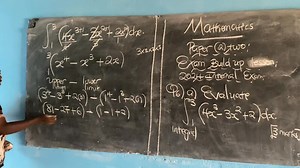 ∫₁³ (4x³⁺¹ - 3x²⁺¹ + 2x) dx.
3 marks
x⁴ - x³ + 2x
upper limit - lower limit
(3⁴ - 3³ + 2(3)) - (1⁴ - 1³ + 2(1))
(81 - 27 + 6) - (1 - 1 + 2)
Mathematics
Paper two;
Exam Build up
2024 Exam.
Evaluate
∫₁³ (4x³ - 3x² + 2) dx
Integrate
3 marks